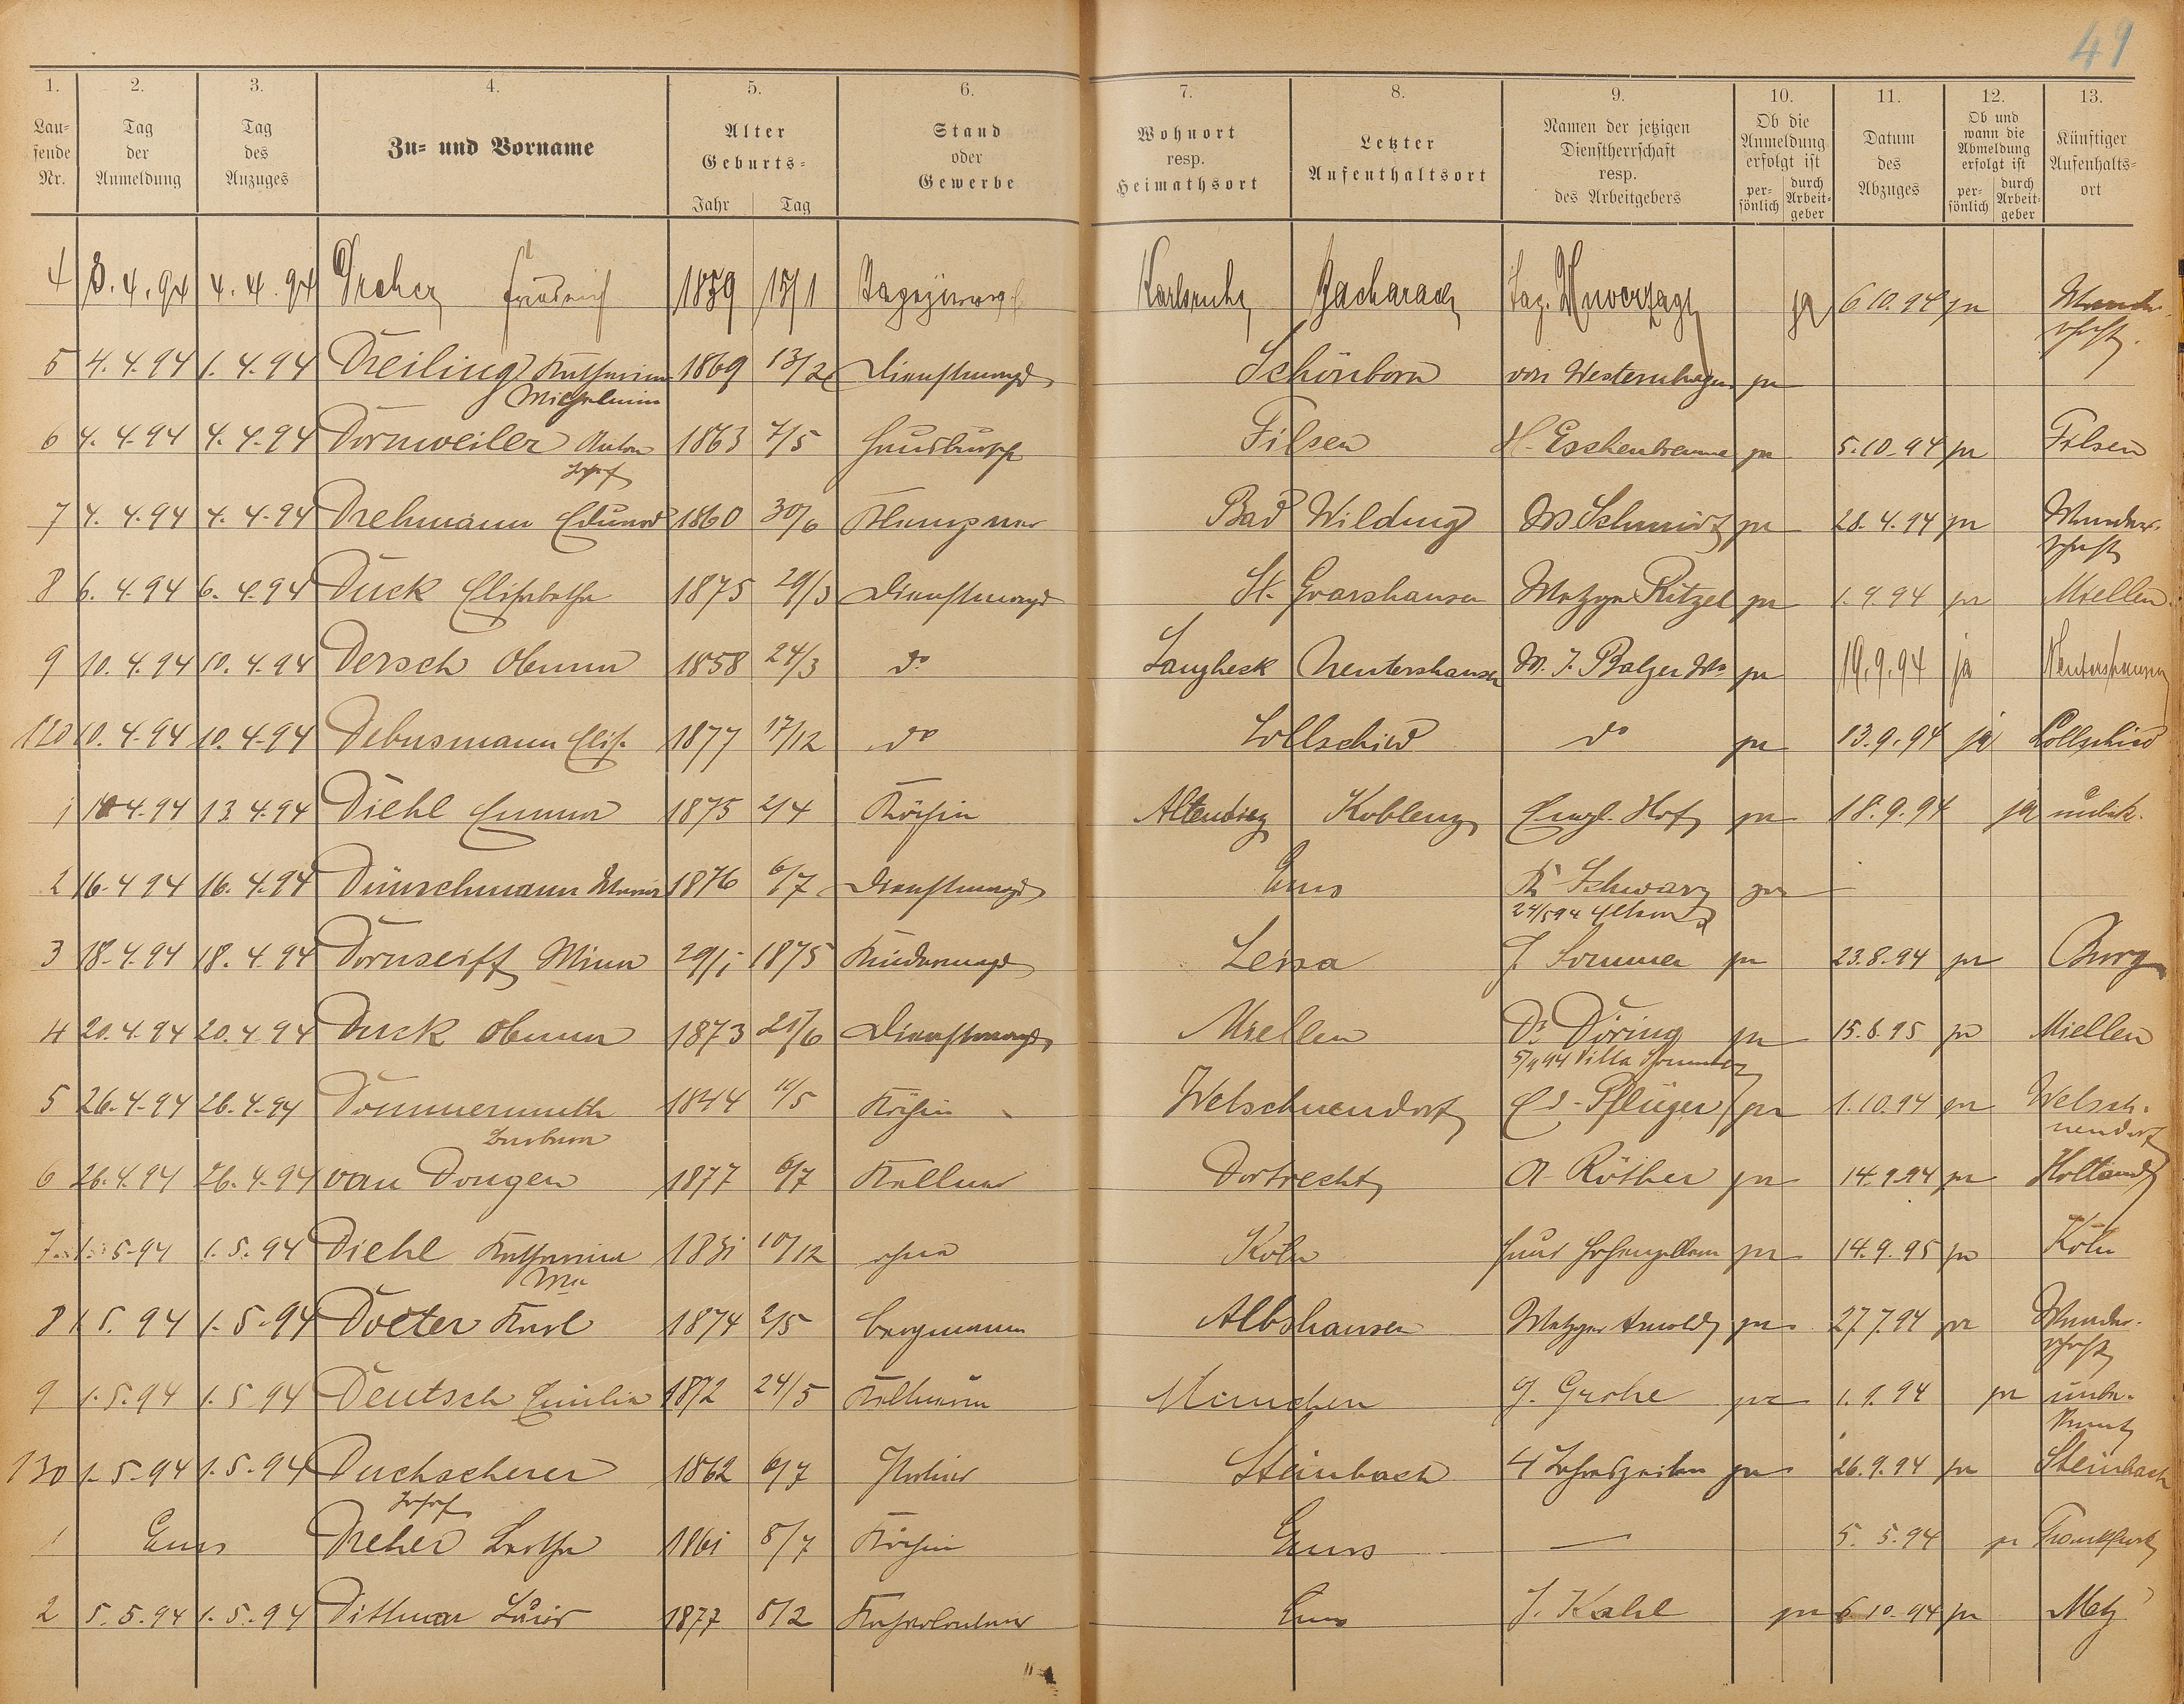 49
1. 2. 3. 4. 5. 6. 7. 8. 9. 10. 11. 12. 13.
Lau-
fende
Nr.
Tag
der
Anmeldung
Tag
des
Anzuges
Zu- und Vorname
Alter
Geburts-
Jahr Tag
Stand
oder
Gewerbe
Wohnort
resp.
Heimathsort
Letzter
Aufenthaltsort
Namen der jetzigen
Dienstherrschaft
resp.
des Arbeitgebers
Ob die
Anmeldung
erfolgt ist
per-
sönlich
durch
Arbeit-
geber
Datum
des
Abzuges
Ob und
wann die
Abmeldung
erfolgt ist
per-
sönlich
durch
Arbeit-
geber
Künftiger
Aufenthalts-
ort
4 3.4.94 4.4.94 Dreher Friedrich 1859 15/1 Karlsruhe Bacharach Unverzagt ja 6 10.94 ja Wander-
schaft.
5 4.4.94 1.4.94 Dreiling Katharina 1869 13/2 Dienstmagd Schönborn von Westernhagen ja
Wilhelmine
6 4.4.94 4.4.94 Dornweiler Anton 1863 7/5 Hausbursche Filsen H. Eschenbrenner ja 5.10.94 ja Filsen
Josef
7 4.4.94 4.4.94 Drehmann Eduard 1860 30/6 Klempner Bad Wildung W. Schmidt ja 28.4.94 ja Wander-
schaft
8 6.4.94 6.4.94 Duck Elisabetha 1875 29/3 Dienstmagd St. Goarshausen Metzger Ritzel ja 1.9.94 ja Miellen
9 10.4.94 10.4.94 Dersch Anna 1858 24/3 do Langheck Nentershausen M. J. Balzer Ww ja 19.9.94 ja Nentershausen
120 10.4.94 10.4.94 Debusmann Elis. 1877 17/12 do Lollschied do ja 13.9.94 ja Lollschied
1 4.94 13.4.94 Diehl Emma 1875 2/4 Köchin Altendiez Koblenz Engl. Hof ja 18.9.94 ja unbek.
2 16.4 94 16.4.94 Dünschmann Maria 1876 6/7 Dienstmagd Ems Schwarz ja
24/5 94
3 18.4.94 18.4.94 Dornseiff Mina 29/1 1875 Kindermagd Leisa J. Sommer ja 23.8.94 ja Burg
4 20.4.94 20.4.94 Duck Anna 1873 25/6 Dienstmagd Miellen Dr Döring ja 15.6.95 ja Miellen
5/9 94 Villa Sommer
5 26.4.94 26.4.94 Dommermuth 1844 11/5 Köchin Welschneudorf Ed. Pflüger ja 1.10.94 ja Welsch-
neudorf
Barbara
6 26.4.94 26.4.94 van Dongen 1877 6/7 Kellner Dortrecht A. Röther ja 14.9.94 ja Holland
7 1.5.94 1.5.94 Diehl Katharina 1831 10/12 ohne Köln Haus Hohenzollern ja 14.9.95 ja Köln
Ww
8 1.5.94 1.5.94 Doeter Karl 1874 2/5 Bergmann Albshausen Metzger Arnold ja 27.7.94 ja Wander-
schaft
9 1.5.94 1.5.94 Deutsch Emilie 1872 24/5 Kellnerin München G. Grohe ja 1.9.94 ja unbe-
kannt
130 1.5.94 1.5.94 Duchscherer 1862 6/7 Portier Steinbach 4 Jahreszeiten ja 26.9.94 ja Steinbach
Josef
1 Ems Dreher Bertha 1861 5/7 Köchin Ems — 5.5.94 ja Frankfurt
2 5.5.94 1.5.94 Dittmar Louis 1877 5/2 Ems J. Kahl ja 6 10.94 ja Metz